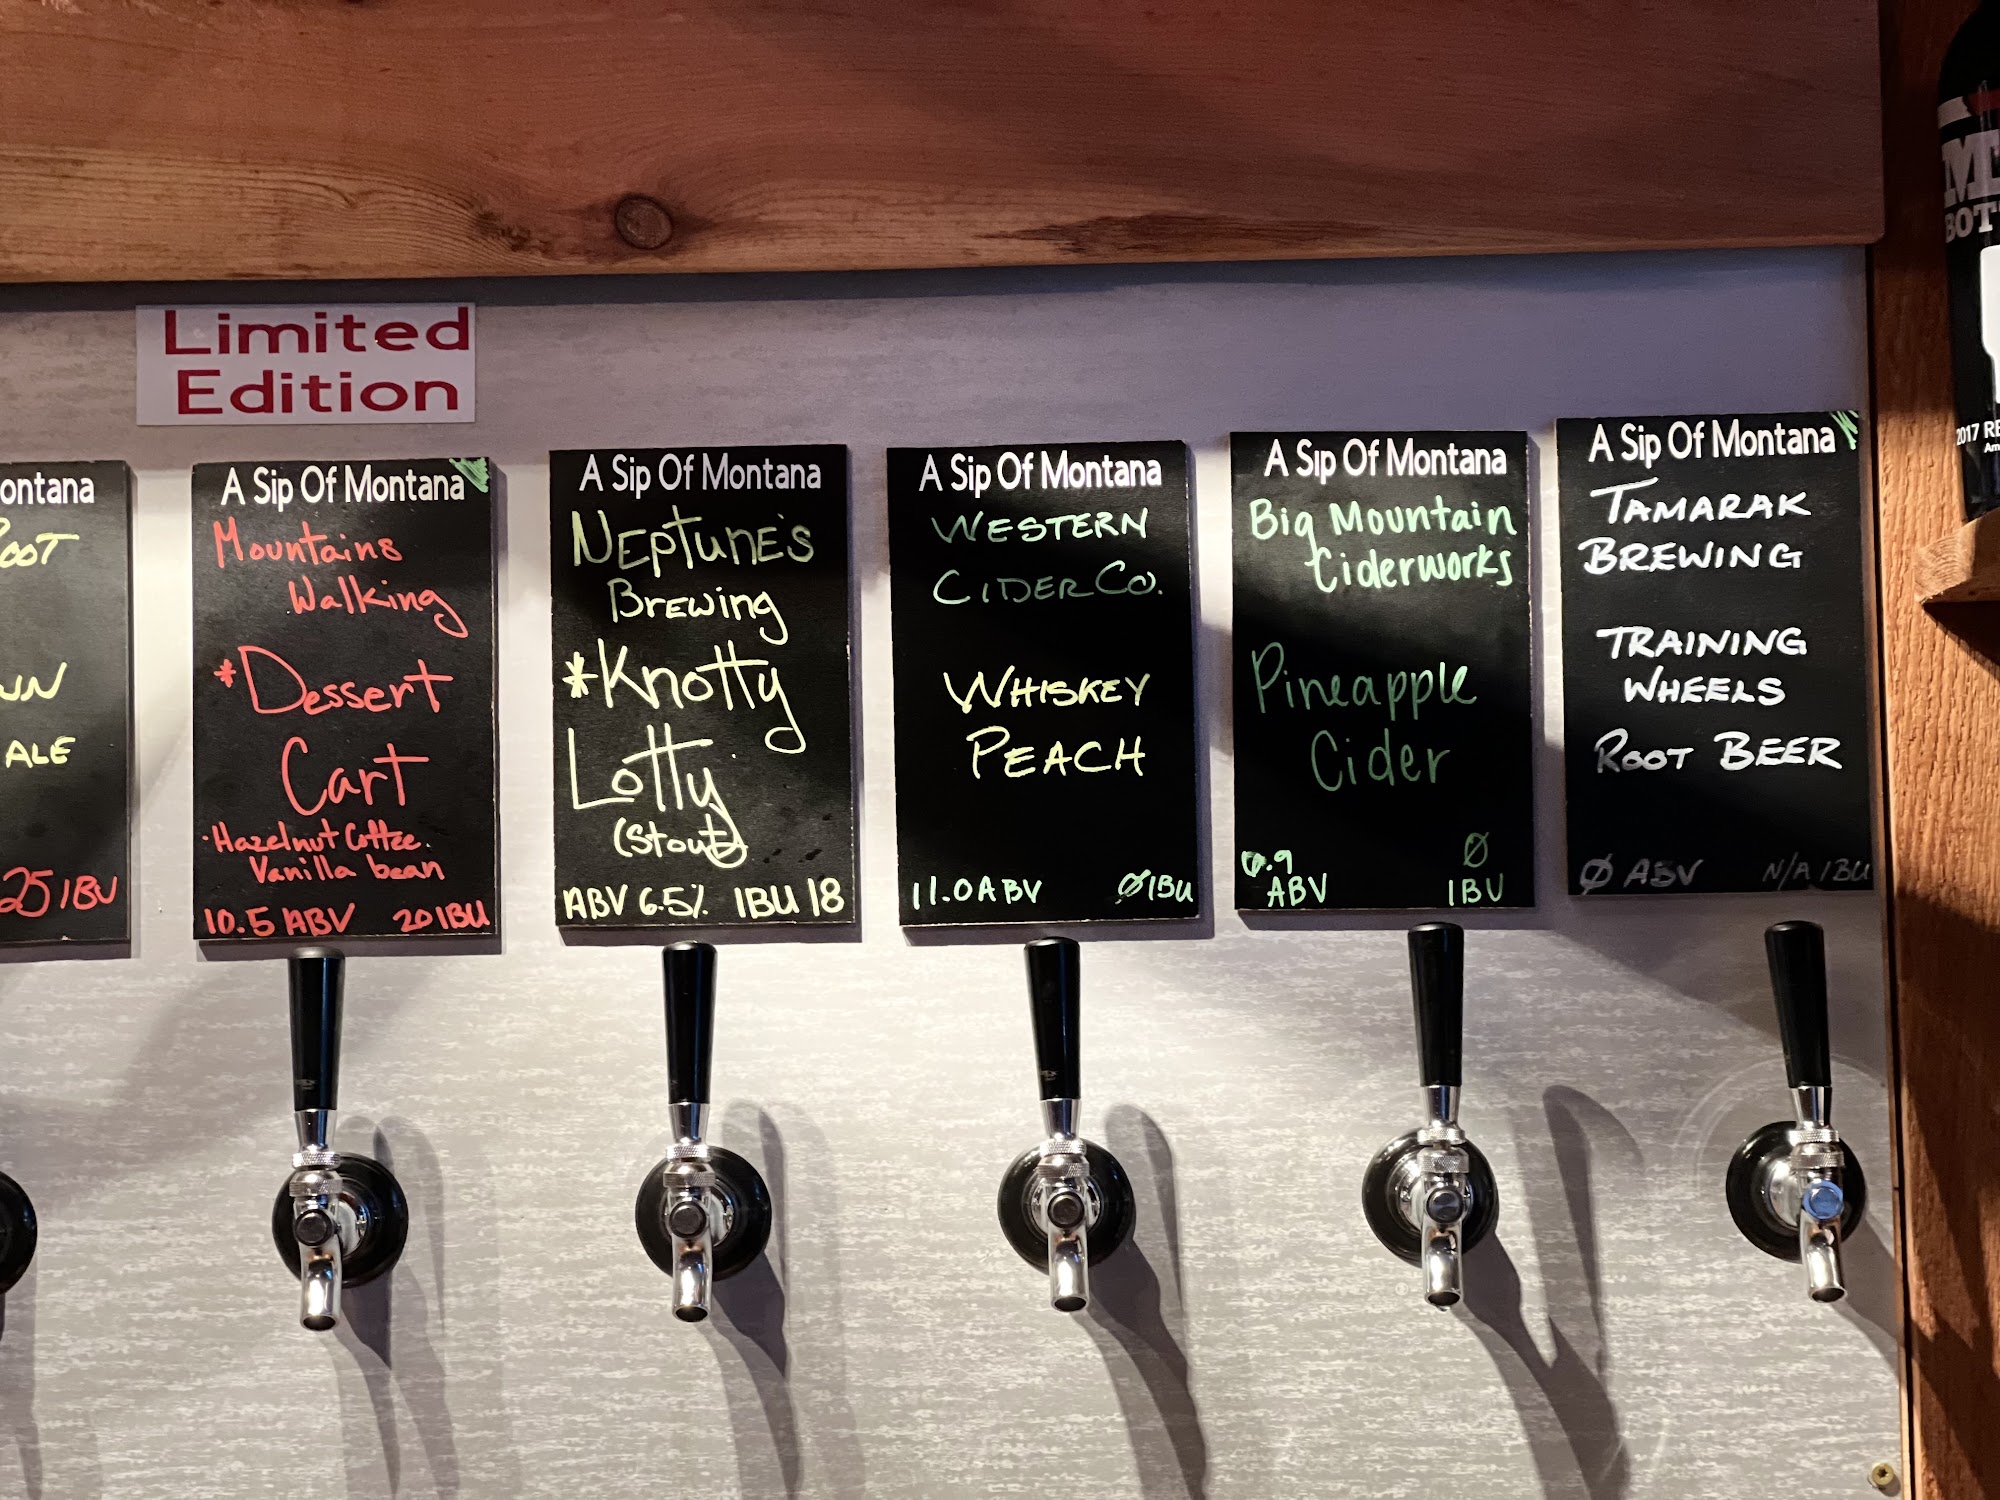 Limited
Edition
ontana
OOT
ALE
25 IBU
A Sip Of Montana
Mountains
Walking
*Dessert
Cart
·Hazelnut Coffee.
Vanilla bean
10.5 ABV 20 IBU
A Sip Of Montana
NEptunE's
BrEwing
*Knotty
Lotty
(Stout)
ABV 6.5% IBU 18
A Sip Of Montana
WESTERN
CIDER CO.
WHISKEY
PEACH
11.0 ABV Ø IBU
A Sip Of Montana
Big Mountain
Ciderworks
Pineapple
Cider
6.9 Ø
ABV IBU
A Sip Of Montana
TAMARAK
BREWING
TRAINING
WHEELS
ROOT BEER
Ø ABV N/A IBU
M
BOT
2017 RE